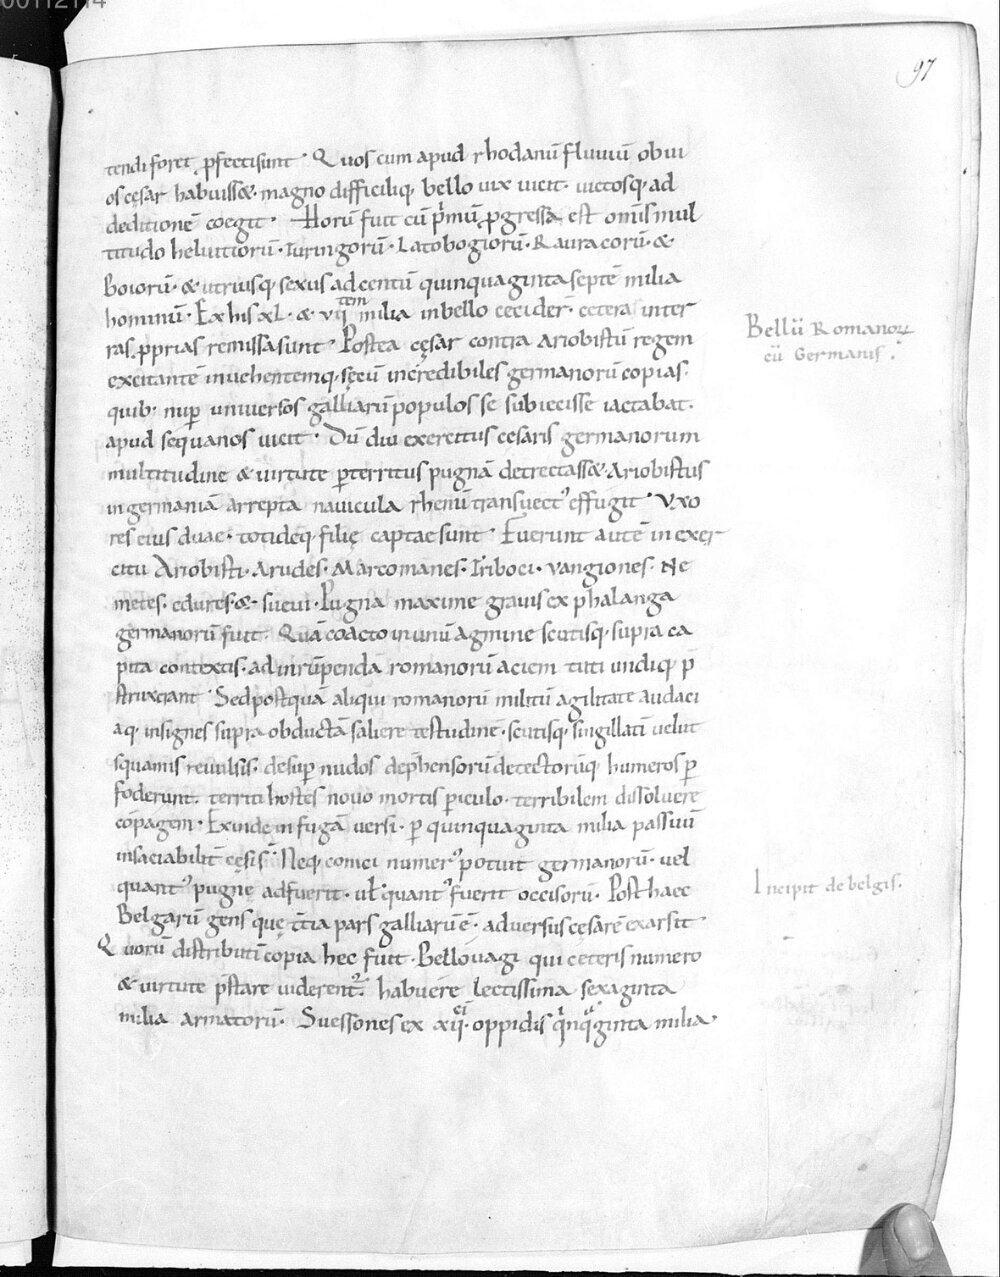 00112114
97
tendi foret, ꝓfecti sunt. Quos cum apud rhodanū fluuiū obui
os cęsar habuiss&. magno difficiliq; bello uix uicit. uictosq; ad
deditionē coegit. Horū fuit cū p̄mū ꝓgressa est om̄is mul
titudo heluitiorū. Turingorū. Latobogiorū. Rauracorū. &
Boiorū. & utriusq; sexus ad centū quinquaginta septē milia
hominū. Ex his xL. & vii tem milia in bello cecider̄. cetera in ter
ras ꝓprias remissa sunt. Postea cęsar contra ariobistū regem
excitantē inuehentemq; secū incredibiles germanorū copias.
quib; nup̄ uniuersos galliarū populos se subiecisse iactabat.
apud sequanos uicit. Dū diu exercitus cesaris germanorum
multitudine & uirtute ꝑterritus pugnā detrectass&. Ariobistus
in germaniā arrepta nauicula rhenū transuect' effugit. Uxo
res eius duae. totideq; filię captae sunt. Fuerunt autē in exer
citu Ariobisti. Arudes. Marcomanes. Triboci. vangiones. Ne
metes. edures. &. sueui. Pugna maxime grauis ex phalanga
germanorū fuit. Quā coacto in unū agmine scutisq; supra ca
pita contextis. ad inrūpendā romanorū aciem tuti undiq; p̄
struxerant. Sed postquā aliqui romanorū militū agilitate audaci
aq; insignes supra obductā saliere testudinē. scutisq; singillatī uelut
squamis reuulsis. desup̄ nudos dephensorū detectorūq; humeros ꝑ
foderunt. territi hostes nouo mortis ꝑiculo. terribilem dissoluere
cōpagem. Exinde in fugam uersi. ꝑ quinquaginta milia passuū
insaciabilit̄ cęsis. Neq; conici numer' potuit germanorū. uel
quant' pugnę adfuerit. uł quant' fuerit occisorū. Post haec
Belgarū gens quę t̄tia pars galliarū ē. aduersus cęsarē exarsit
Quorū distributī copia hec fuit. Bellouagi qui ceteris numero
& uirtute p̄stare uiderent̄. habuere lectissima sexaginta
milia armatorū. Suessones ex xii ci. oppidis q̄nq̄ginta milia
Bellū Romanoꝝ
cū Germanis.
Incipit de belgis.